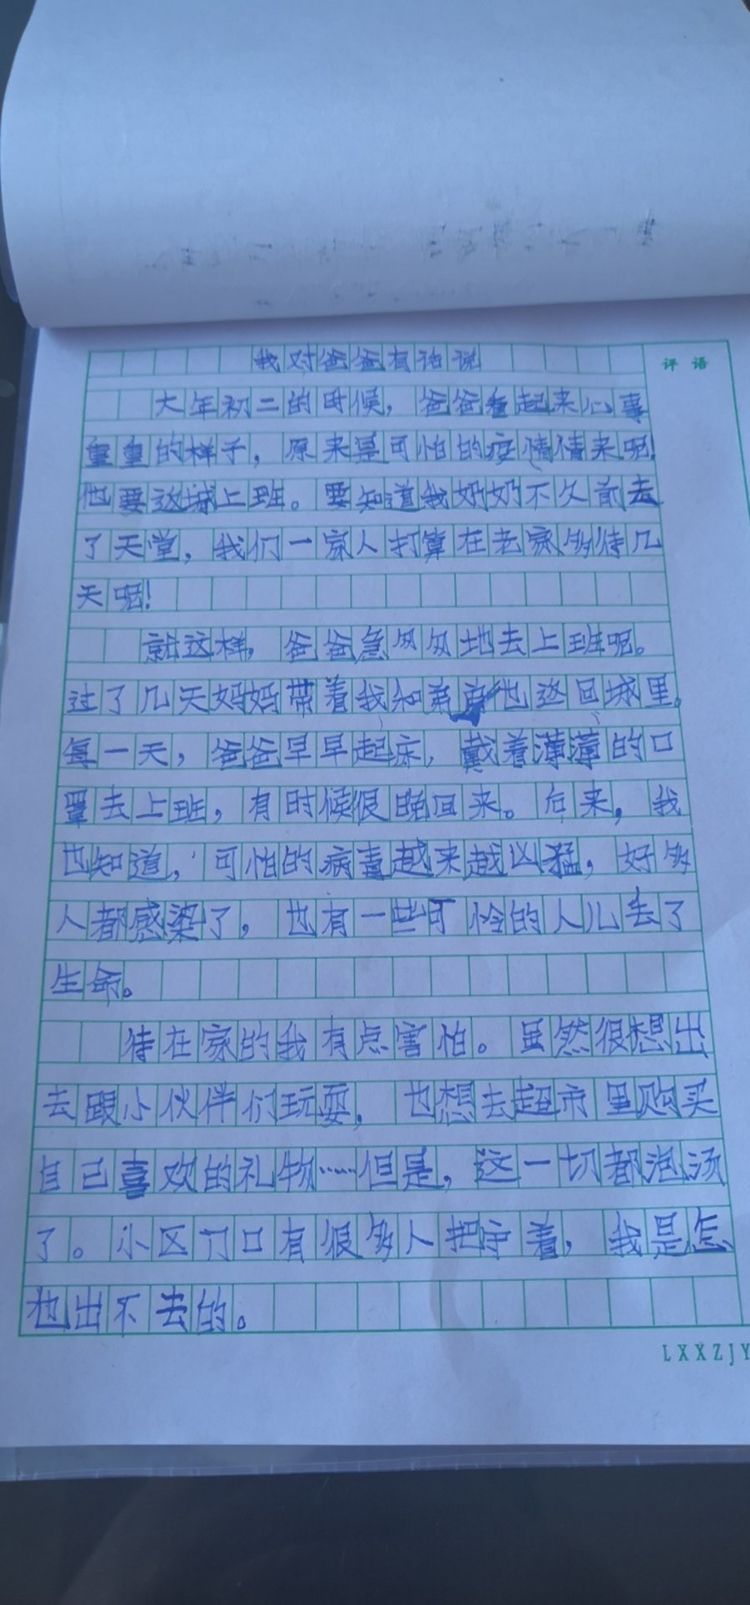 我对爸爸有话说
评语
大年初二的时候，爸爸看起来心事
重重的样子，原来是可怕的疫情来呢，
他要返城上班。要知道我奶奶不久前去
了天堂，我们一家人打算在老家多待几
天呢！
就这样，爸爸急匆匆地去上班呢。
过了几天妈妈带着我和弟弟也返回城里。
每一天，爸爸早早起床，戴着薄薄的口
罩去上班，有时候很晚回来。后来，我
也知道，可怕的病毒越来越凶猛，好多
人都感染了，也有一些可怜的人儿丢了
生命。
待在家的我有点害怕。虽然很想出
去跟小伙伴们玩耍，也想去超市里购买
自己喜欢的礼物……但是，这一切都泡汤
了。小区门口有很多人把守着，我是怎
也出不去的。
LXXZJY